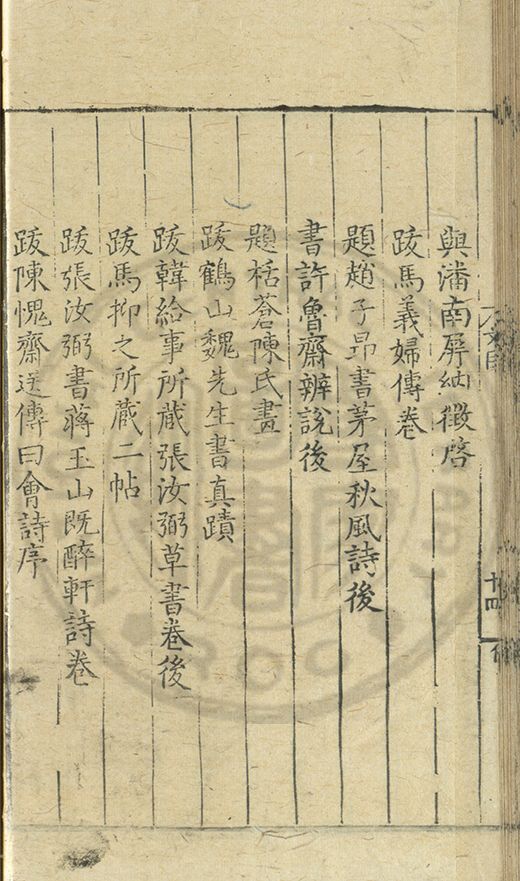 與潘南屏納徵啓
跋馬義婦傳卷
題趙子昂書茅屋秋風詩後
書許魯齋辨說後
題栝蒼陳氏畫
跋鶴山魏先生書真蹟
跋韓給事所蔵張汝弼草書卷後
跋馬抑之所蔵二帖
跋張汝弼書蔣玉山既醉軒詩卷
跋陳愧齋送傳曰會詩序
十四